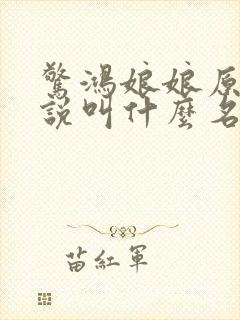 驚鴻娘娘原
說叫什麼名
苗紅軍